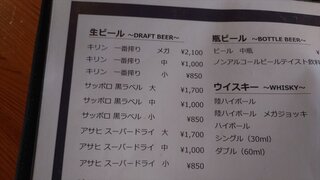 生ビール ～DRAFT BEER～
キリン 一番搾り メガ ¥2,100
キリン 一番搾り 中 ¥1,000
キリン 一番搾り 小 ¥850
サッポロ 黒ラベル 大 ¥1,700
サッポロ 黒ラベル 中 ¥1,000
サッポロ 黒ラベル 小 ¥850
アサヒ スーパードライ 大 ¥1,700
アサヒ スーパードライ 中 ¥1,000
アサヒ スーパードライ 小 ¥850
瓶ビール ～BOTTLE BEER～
ビール 中瓶
ノンアルコールビールテイスト飲料
ウイスキー ～WHISKY～
陸ハイボール
陸ハイボール メガジョッキ
ハイボール
シングル(30ml)
ダブル(60ml)